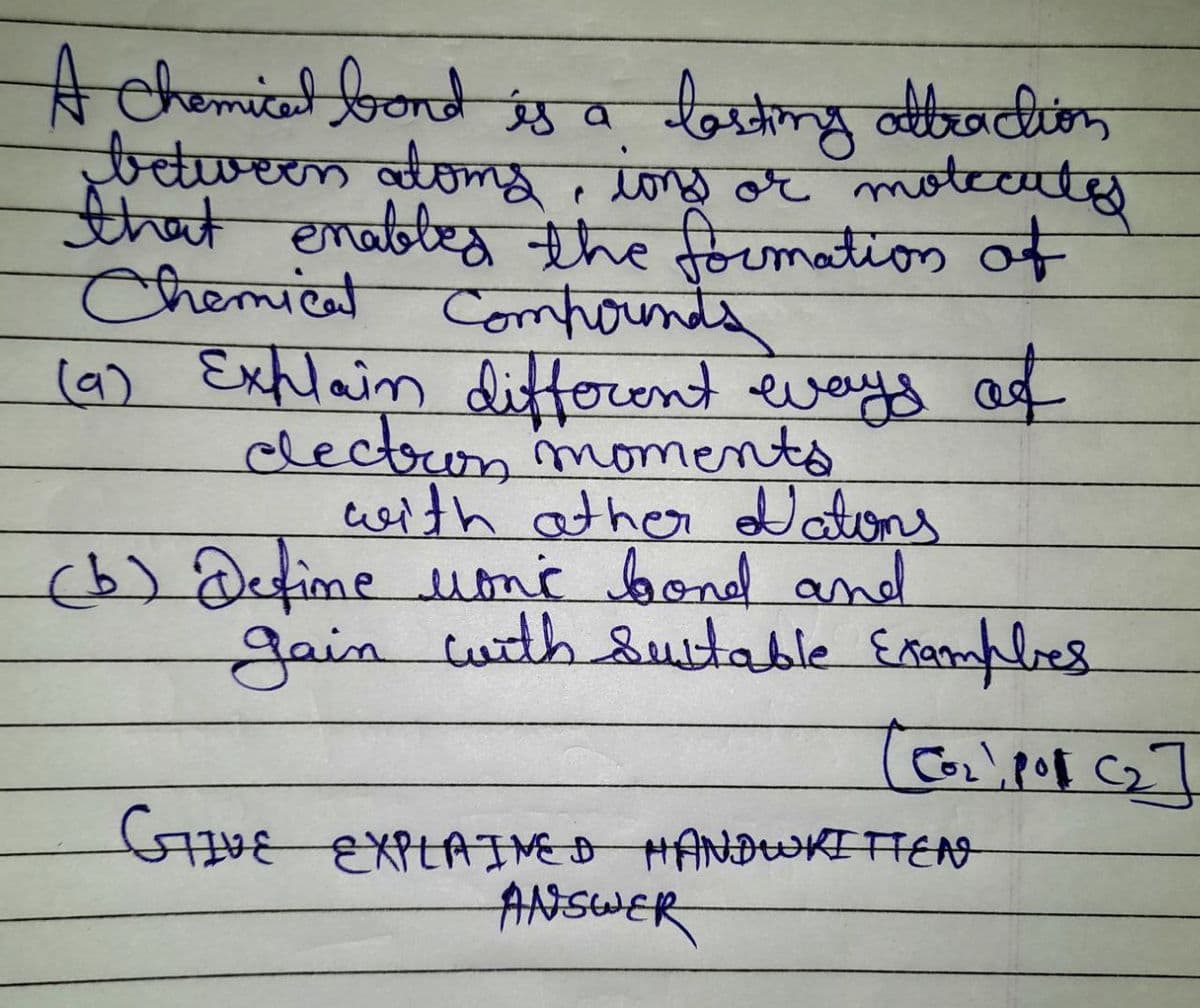 A chemical bond is a lasting attraction
between atoms, ions or molecules
that enables the formation of
Chemical Compounds
(a) Explain different ways of
electron moments
with other atoms
(b) Define bond and
gain with Suitable Examples
[CO2', C2]
GIVE EXPLAINED HANDWRITTEN
ANSWER